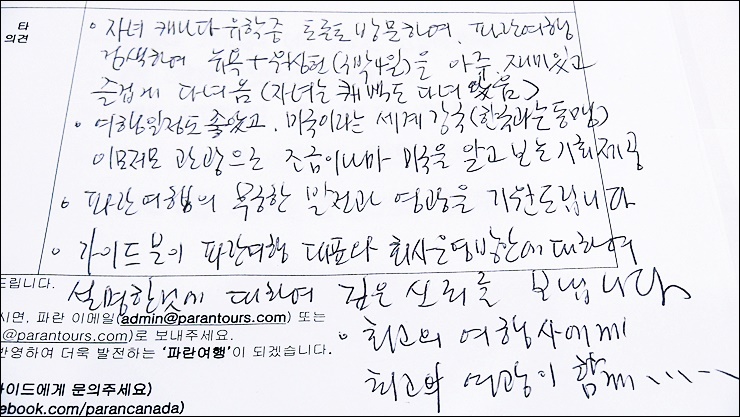 타
의견
• 자녀 캐나다 유학중 토론토 방문하여, 파란여행
검색하여 뉴욕+워싱턴(3박4일)을 아주 재미있고
즐겁게 다녀옴(자녀는 퀘백도 다녀왔음)
• 여행일정도 좋았고, 미국이라는 세계 강국(한국과는 동맹)
이모저모 관광으로 조금이나마 미국을 알고 보는 기회제공
• 파란여행의 무궁한 발전과 영광을 기원드립니다
• 가이드분이 파란여행 대표와 회사운영방안에 대하여
설명한것에 대하여 깊은 신뢰를 보냅니다
드립니다.
시면, 파란 이메일(admin@parantours.com) 또는
@parantours.com)로 보내주세요.
반영하여 더욱 발전하는 '파란여행'이 되겠습니다.
• 최고의 여행사에게
최고의 영광이 함께.....
가이드에게 문의주세요)
ebook.com/parancanada)